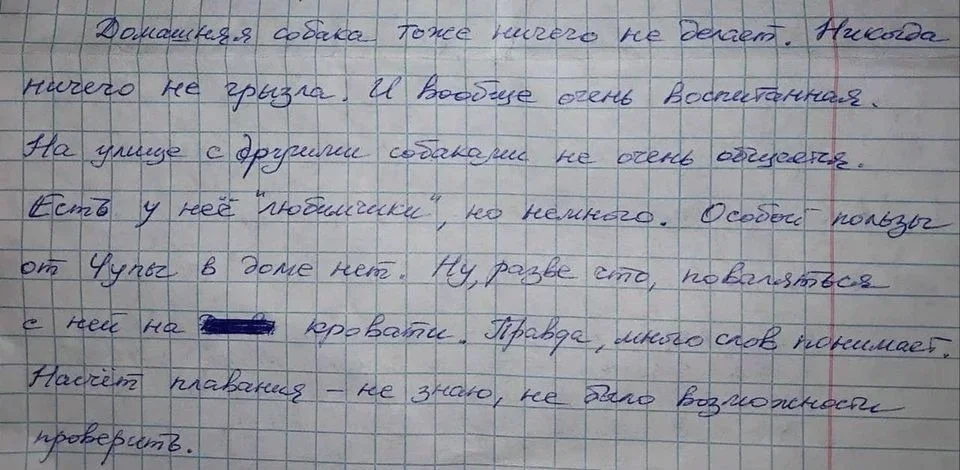 Домашняя собака тоже ничего не делает. Никогда
ничего не грызла. И вообще очень воспитанная.
На улице с другими собаками не очень общается.
Есть у неё "любимчики", но немного. Особой пользы
от Чупы в доме нет. Ну, разве что, поваляться
с ней на кровати. Правда, много слов понимает.
Насчёт плавания – не знаю, не было возможности
проверить.